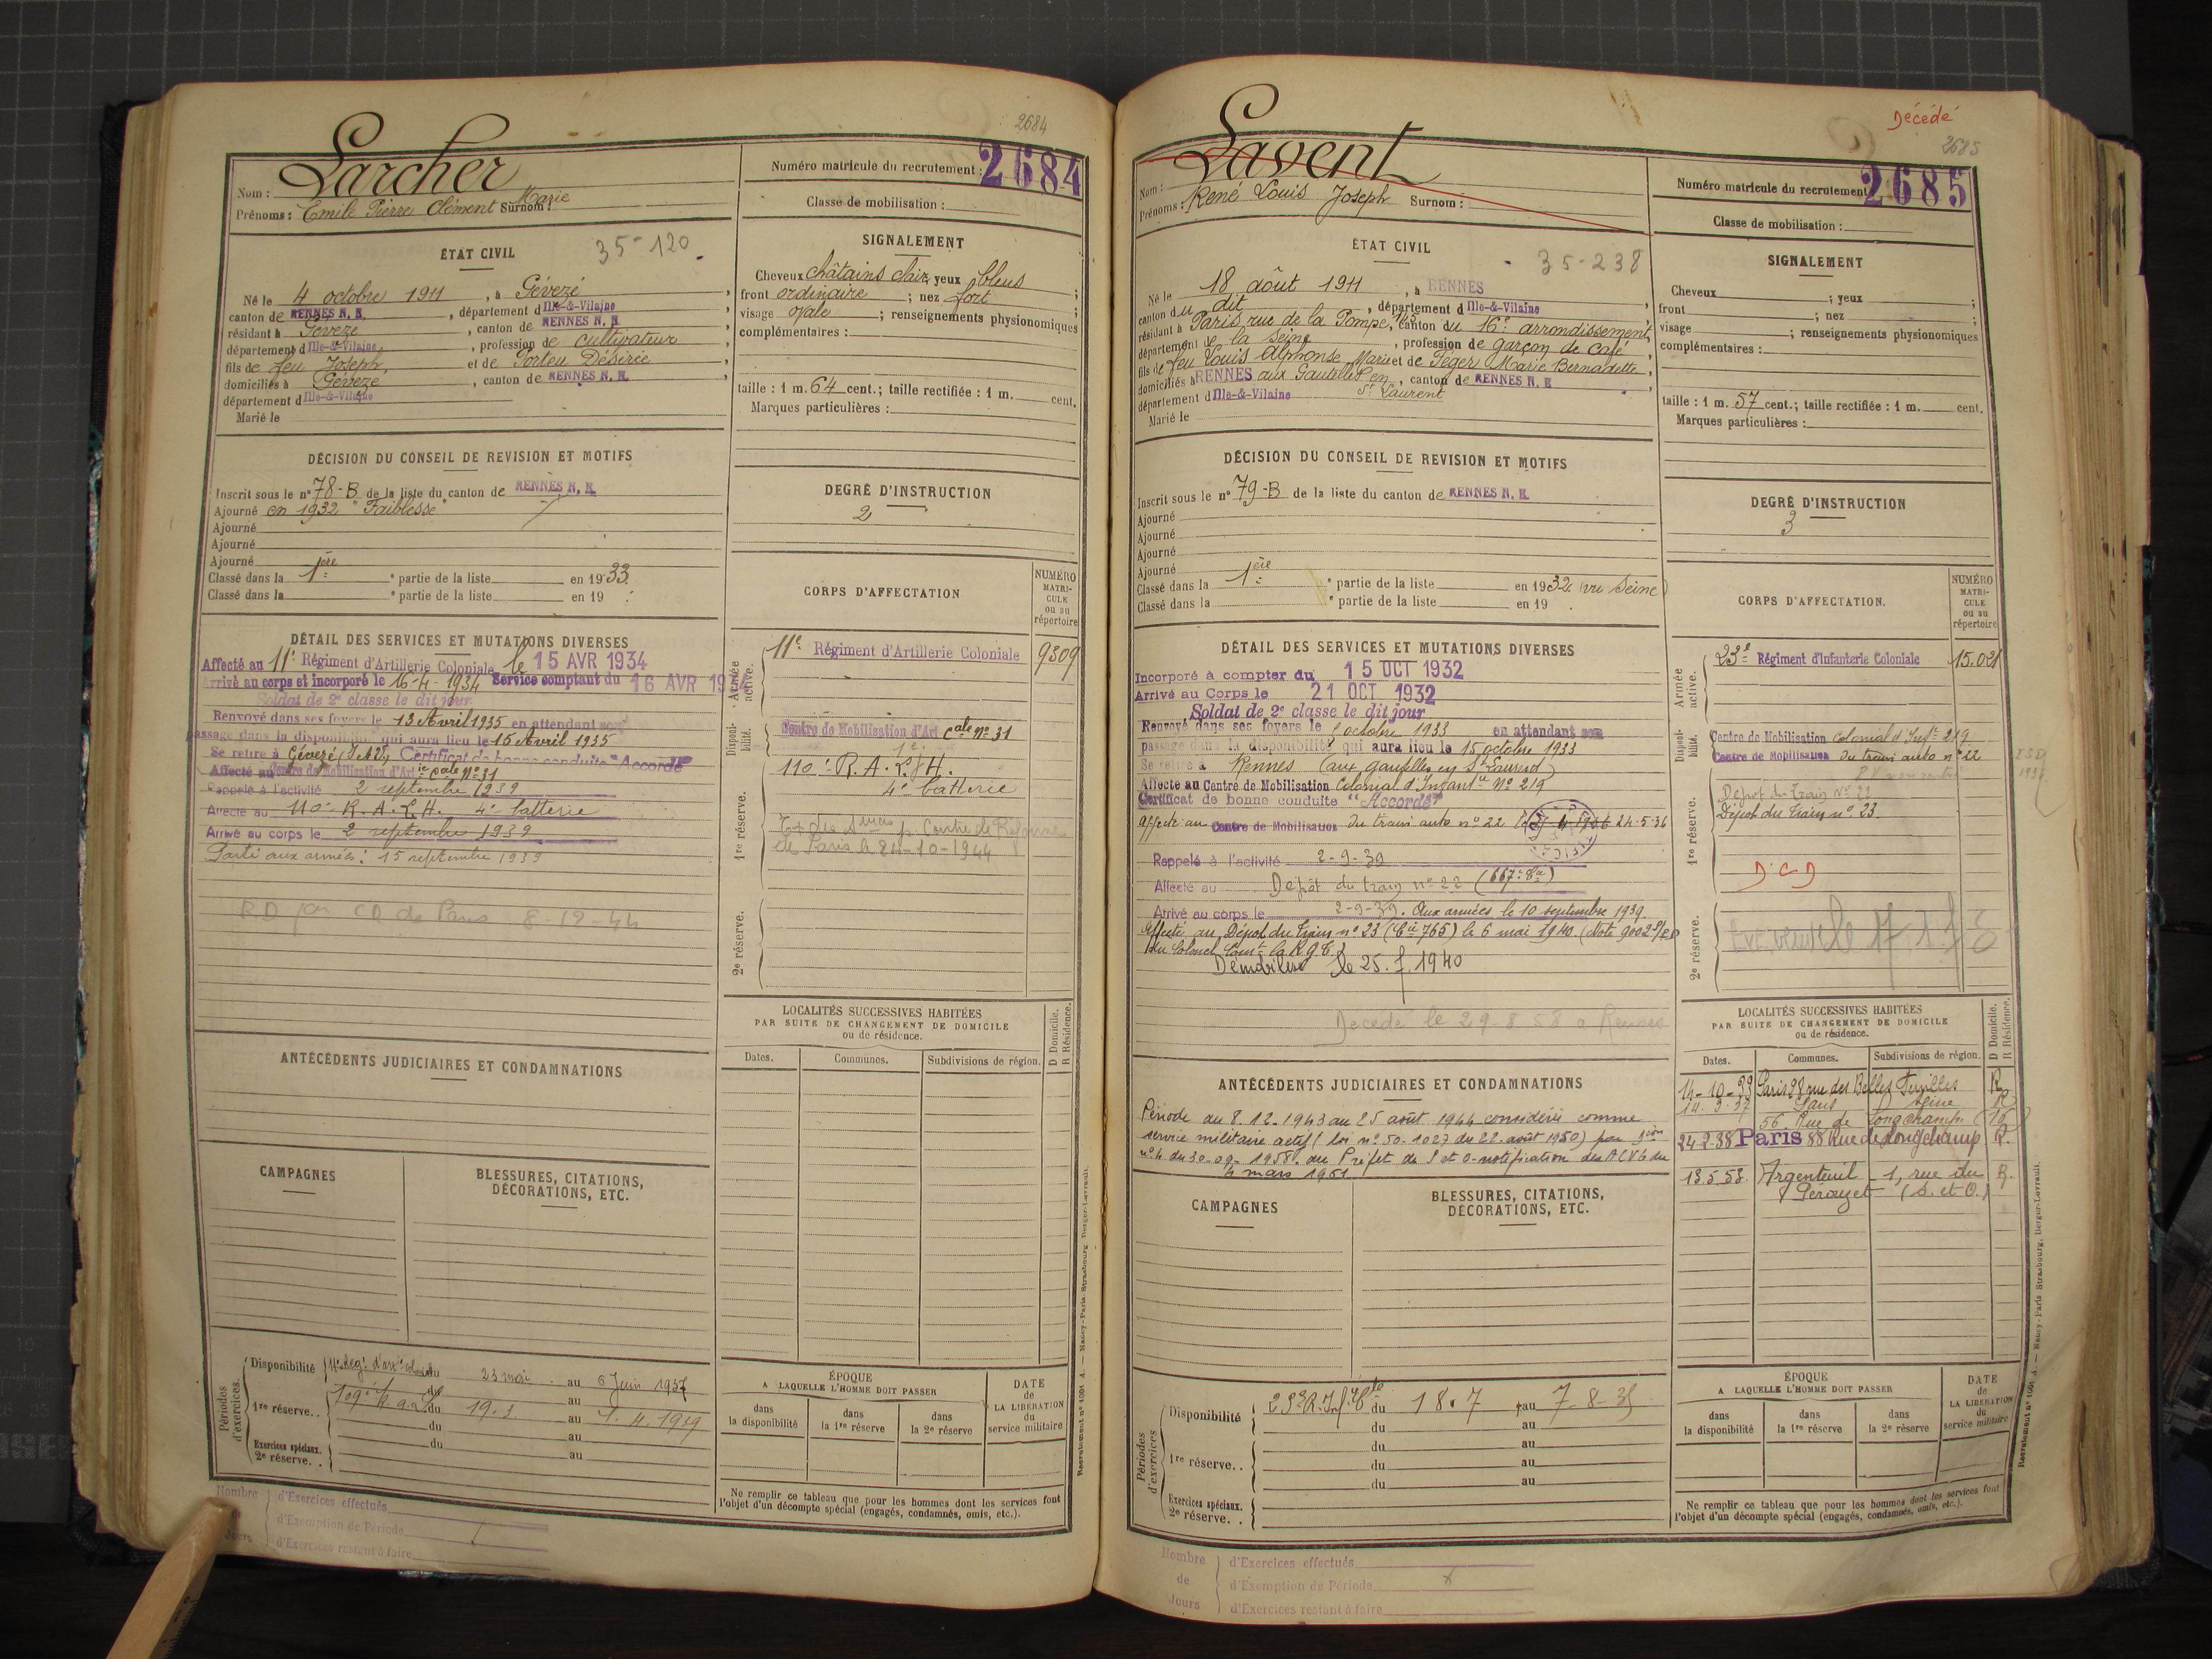 2684
Larcher
Nom :
Prénoms : Emile Pierre Clément Surnom : Marie
Numéro matricule du recrutement : 2684
Classe de mobilisation :
ÉTAT CIVIL
35-120
Né le 4 octobre 1911, à Gévezé,
canton de RENNES N. E., département d Ille-&-Vilaine,
résidant à Gévezé, canton de RENNES N. E.
département d Ille-&-Vilaine, profession de cultivateur
fils de feu Joseph, et de Porteu Désirée
domiciliés à Gévezé, canton de RENNES N. E.,
département d Ille-&-Vilaine
Marié le
SIGNALEMENT
Cheveux châtains clair, yeux bleus ;
front ordinaire ; nez fort ;
visage ovale ; renseignements physionomiques
complémentaires :
taille : 1 m. 64 cent.; taille rectifiée : 1 m. cent.
Marques particulières :
DÉCISION DU CONSEIL DE REVISION ET MOTIFS
Inscrit sous le n° 78-B de la liste du canton de RENNES N. E.
Ajourné en 1932 "Faiblesse"
Ajourné
Ajourné
Ajourné
Classé dans la 1ère partie de la liste en 1933.
Classé dans la partie de la liste en 19 .
DEGRÉ D'INSTRUCTION
2
CORPS D'AFFECTATION
NUMÉRO MATRICULE ou au répertoire
DÉTAIL DES SERVICES ET MUTATIONS DIVERSES
Affecté au 11e Régiment d'Artillerie Coloniale le 15 AVR 1934
Arrivé au corps et incorporé le 16-4-1934 Service comptant du 16 AVR 19
Soldat de 2e classe le dit jour
Renvoyé dans ses foyers le 13 Avril 1935 en attendant son
passage dans la disponibilité qui aura lieu le 15 Avril 1935
Se retire à Gévezé (I.&V.) Certificat de bonne conduite "Accordé"
Affecté au Centre de Mobilisation d'Art ie cale N° 31
Rappelé à l'activité 2 septembre 1939
Affecté au 110e R.A.L.H. 4e batterie
Arrivé au corps le 2 septembre 1939
Parti aux armées : 15 septembre 1939
RD par CR de Paris 8-12-44
Armée active.
11e Régiment d'Artillerie Coloniale 9309
Disponibilité.
Centre de Mobilisation d'Art cale N° 31
1re réserve.
110e R.A.L.H.
4e batterie
Centre de Réforme
de Paris le 24-10-1944
2e réserve.
LOCALITÉS SUCCESSIVES HABITÉES
PAR SUITE DE CHANGEMENT DE DOMICILE
ou de résidence.
D Domicile.
R Résidence.
Dates. Communes. Subdivisions de région.
ANTÉCÉDENTS JUDICIAIRES ET CONDAMNATIONS
CAMPAGNES
BLESSURES, CITATIONS,
DÉCORATIONS, ETC.
Périodes d'exercices.
Disponibilité du 23 mai au 6 Juin 1937
1re réserve. . du 19.3. au 1.4.1939
du au
du au
Exercices spéciaux.
2e réserve. .
ÉPOQUE
A LAQUELLE L'HOMME DOIT PASSER
dans la disponibilité
dans la 1re réserve
dans la 2e réserve
DATE de LA LIBÉRATION du service militaire
Ne remplir ce tableau que pour les hommes dont les services font
l'objet d'un décompte spécial (engagés, condamnés, omis, etc.).
Nombre de Jours
d'Exercices effectués
d'Exemption de Période
d'Exercices restant à faire
Recrutement n° 1001 A. — Nancy-Paris-Strasbourg, Berger-Levrault.
Décédé
2685
Lavent
Nom :
Prénoms : René Louis Joseph Surnom :
Numéro matricule du recrutement 2685
Classe de mobilisation :
ÉTAT CIVIL
35-238
Né le 18 août 1911, à RENNES
canton du dit, département d Ille-&-Vilaine,
résidant à Paris, rue de la Pompe, 145, canton du 16e arrondissement,
département de la Seine, profession de garçon de café,
fils de feu Louis Alphonse Marie et de Féger Marie Bernadette,
domiciliés à RENNES aux Gautelles en St Laurent, canton de RENNES N. E.
département d Ille-&-Vilaine
Marié le
SIGNALEMENT
Cheveux ; yeux ;
front ; nez ;
visage ; renseignements physionomiques
complémentaires :
taille : 1 m. 57 cent.; taille rectifiée : 1 m. cent.
Marques particulières :
DÉCISION DU CONSEIL DE REVISION ET MOTIFS
Inscrit sous le n° 79-B de la liste du canton de RENNES N. E.
Ajourné
Ajourné
Ajourné
Ajourné
Classé dans la 1ère partie de la liste en 1932 (vu Seine)
Classé dans la partie de la liste en 19 .
DEGRÉ D'INSTRUCTION
3
CORPS D'AFFECTATION.
NUMÉRO MATRICULE ou au répertoire
DÉTAIL DES SERVICES ET MUTATIONS DIVERSES
Incorporé à compter du 15 OCT 1932
Arrivé au Corps le 21 OCT 1932
Soldat de 2e classe le dit jour
Renvoyé dans ses foyers le octobre 1933 en attendant son
passage dans la disponibilité qui aura lieu le 15 octobre 1933
Se retire à Rennes (aux gautelles en St Laurent)
Affecté au Centre de Mobilisation Colonial d'Infanterie N° 219
Certificat de bonne conduite "Accordé"
Affecté au Centre de Mobilisation du train auto n° 22 24-5-36
Rappelé à l'activité 2-9-39
Affecté au Dépôt du train n° 22 (667e Cie)
Arrivé au corps le 2-9-39. Aux armées le 10 septembre 1939.
Affecté au Dépôt du train n° 23 (Cie 765) le 6 mai 1940 (Note 9002
du Colonel Comt
Démobilisé le 25.7.1940
Décédé le 29.8.58 à Rennes
Armée active.
23e Régiment d'Infanterie Coloniale 15.021
Disponibilité.
Centre de Mobilisation Colonial d'Infie 219
Centre de Mobilisation du train auto n° 22
1re réserve.
Dépôt du train N° 22
Dépôt du train n° 23.
DCD
2e réserve.
LOCALITÉS SUCCESSIVES HABITÉES
PAR SUITE DE CHANGEMENT DE DOMICILE
ou de résidence.
D Domicile.
R Résidence.
Dates. Communes. Subdivisions de région.
14-10-33 Paris 98 rue des Belles Feuilles R
14.3.37 Paris Seine R
56. Rue de Longchamp (16)
24 2 38 Paris 88 Rue de Longchamp R.
13.5.53. Argenteuil 1, rue du R.
Perouzet (S. et O.)
ANTÉCÉDENTS JUDICIAIRES ET CONDAMNATIONS
Période du 8.12.1943 au 25 août 1944 considérée comme
service militaire actif (loi n° 50.1027 du 22 août 1950) par
n° 4 du 30-09-1958. du Préfet de S et O-notification des ACVG du
4 mars 1961
CAMPAGNES
BLESSURES, CITATIONS,
DÉCORATIONS, ETC.
Périodes d'exercices
Disponibilité 23e R.Inf. Cle du 18.7 au 7-8-35
du au
1re réserve. . du au
du au
du au
Exercices spéciaux.
2e réserve. .
ÉPOQUE
A LAQUELLE L'HOMME DOIT PASSER
dans la disponibilité
dans la 1re réserve
dans la 2e réserve
DATE de LA LIBÉRATION du service militaire
Ne remplir ce tableau que pour les hommes dont les services font
l'objet d'un décompte spécial (engagés, condamnés, omis, etc.).
Nombre de Jours
d'Exercices effectués
d'Exemption de Période
d'Exercices restant à faire
Recrutement n° 1001 A. — Nancy-Paris-Strasbourg, Berger-Levrault.